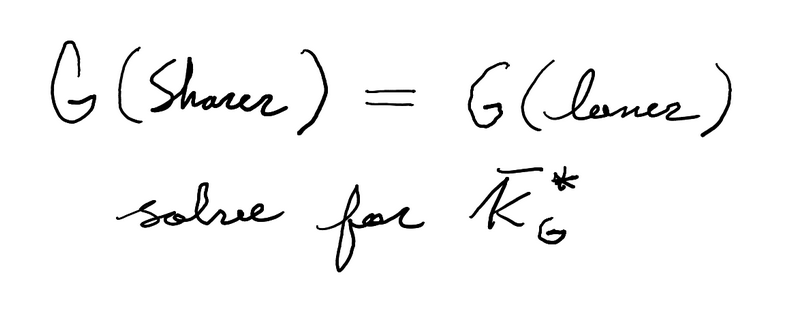 G(Sharer) = G(loner)
solve for K̄_G^*